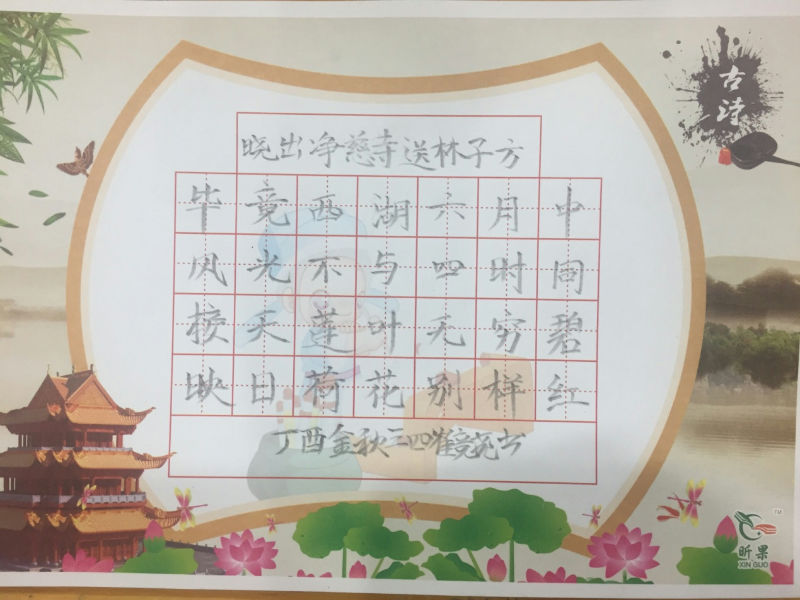 古诗
晓出净慈寺送林子方
毕竟西湖六月中
风光不与四时同
接天莲叶无穷碧
映日荷花别样红
丁酉金秋三四
昕果
XIN GUO
TM